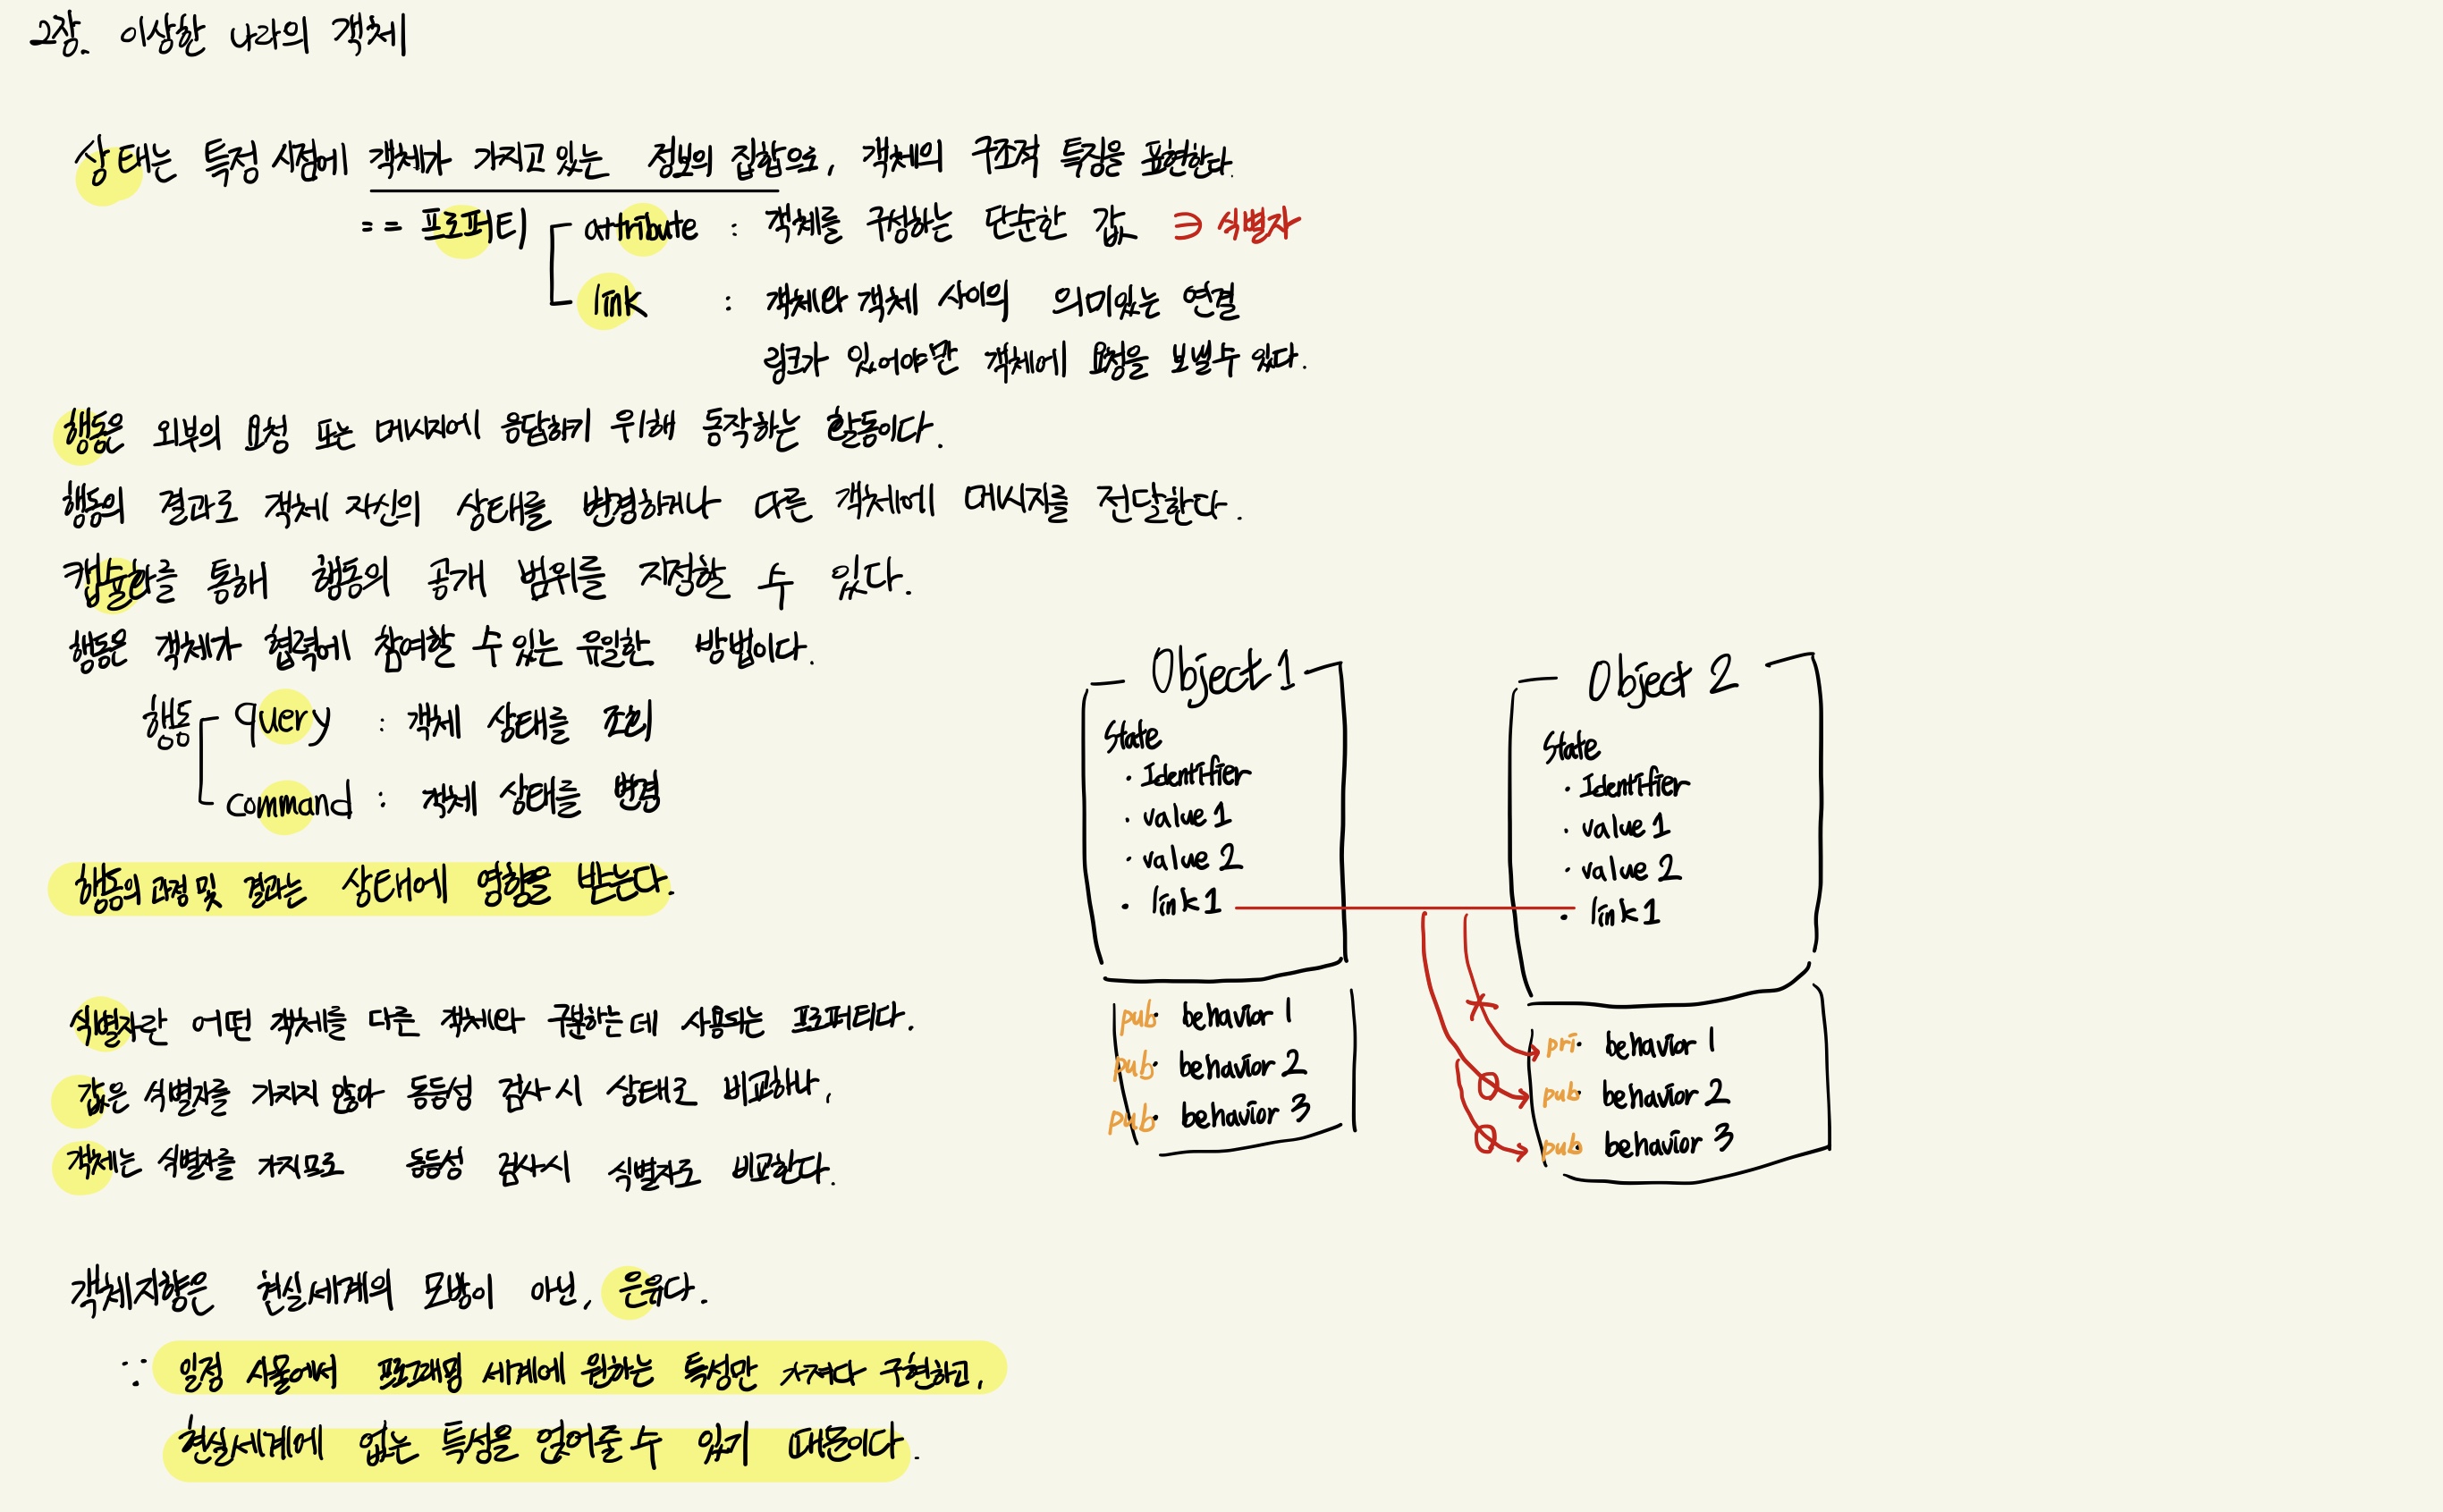 2장. 이상한 나라의 객체
상태는 특정 시점에 객체가 가지고 있는 정보의 집합으로, 객체의 구조적 특징을 표현한다.
== 프로퍼티 attribute : 객체를 구성하는 단순한 값 ∋ 식별자
link : 객체와 객체 사이의 의미있는 연결
링크가 있어야만 객체에 요청을 보낼 수 있다.
행동은 외부의 요청 또는 메시지에 응답하기 위해 동작하는 활동이다.
행동의 결과로 객체 자신의 상태를 변경하거나 다른 객체에 메시지를 전달한다.
캡슐화를 통해 행동의 공개 범위를 지정할 수 있다.
행동은 객체가 협력에 참여할 수 있는 유일한 방법이다.
행동 query : 객체 상태를 조회
command : 객체 상태를 변경
행동의 과정 및 결과는 상태에 영향을 받는다.
식별자란 어떤 객체를 다른 객체와 구분하는 데 사용되는 프로퍼티다.
값은 식별자를 가지지 않아 동등성 검사 시 상태로 비교하나,
객체는 식별자를 가지므로 동등성 검사시 식별자로 비교한다.
객체지향은 현실세계의 모방이 아닌, 은유다.
∵ 일정 사물에서 프로그래밍 세계에 원하는 특성만 가져다 구현하고,
현실세계에 없는 특성을 얹어줄 수 있기 때문이다.
Object 1
State
· Identifier
· value 1
· value 2
· link 1
pub · behavior 1
pub · behavior 2
pub · behavior 3
Object 2
State
· Identifier
· value 1
· value 2
· link 1
pri · behavior 1
pub · behavior 2
pub · behavior 3